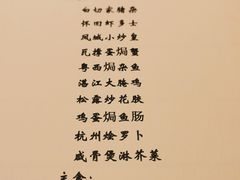 白切家猪杂
怀旧虾多士
凤城小炒皇
瓦撑蛋焗蟹
粤西焗杂鱼
湛江大腌鸡
松露炒花胶
鸡蛋焗鱼肠
杭州烩萝卜
咸骨煲淋芥菜
主食：